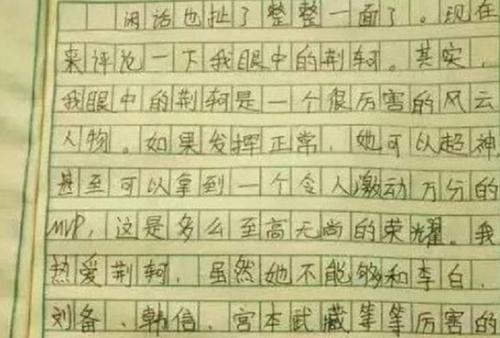 闲话也扯了整整一面了。现在
来评论一下我眼中的荆轲。其实，
我眼中的荆轲是一个很厉害的风云
人物。如果发挥正常，她可以超神
甚至可以拿到一个令人激动万分的
MVP，这是多么至高无尚的荣耀。我
热爱荆轲，虽然她不能够和李白、
刘备、韩信、宫本武藏等等厉害的